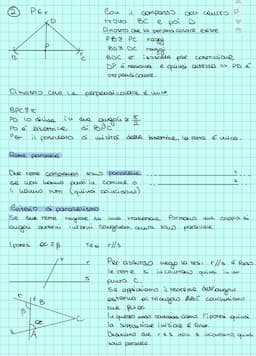 ② P ∈ r
Con il compasso, con centro P,
trovo BC e poi D
Dimostro che la perpendicolare esiste
PB ≅ PC raggi
BD ≅ DC raggi
BDC è isoscele per costruzione
DP è mediana e quindi altezza ⇒ PD è
perpendicolare
D
B
P
C
Dimostro che la perpendicolare è unica
BPC ≅ π
PD lo divide in due angoli ≅ π/2
PD è bisettrice di BPC
Per il postulato di unicità della bisettrice, la retta è unica.
Rette parallele
Due rette complanari sono parallele
se non hanno punti in comune o
li hanno tutti (quindi coincidono)
Criterio di parallelismo
Se due rette tagliate da una trasversale formano una coppia di
angoli alterni interni congruenti, allora sono parallele.
Ipotesi α ≅ β
Tesi r//s
r
s
Per assurdo nego la tesi: r//s è falso.
le rette si incontrano quindi in un
punto C.
Se applichiamo il teorema dell'angolo
esterno al triangolo ABC concludiamo
che β > α
la supposizione iniziale è falsa.
Deduciamo che r e s non si incontrano, quindi
sono parallele.
B
C
A